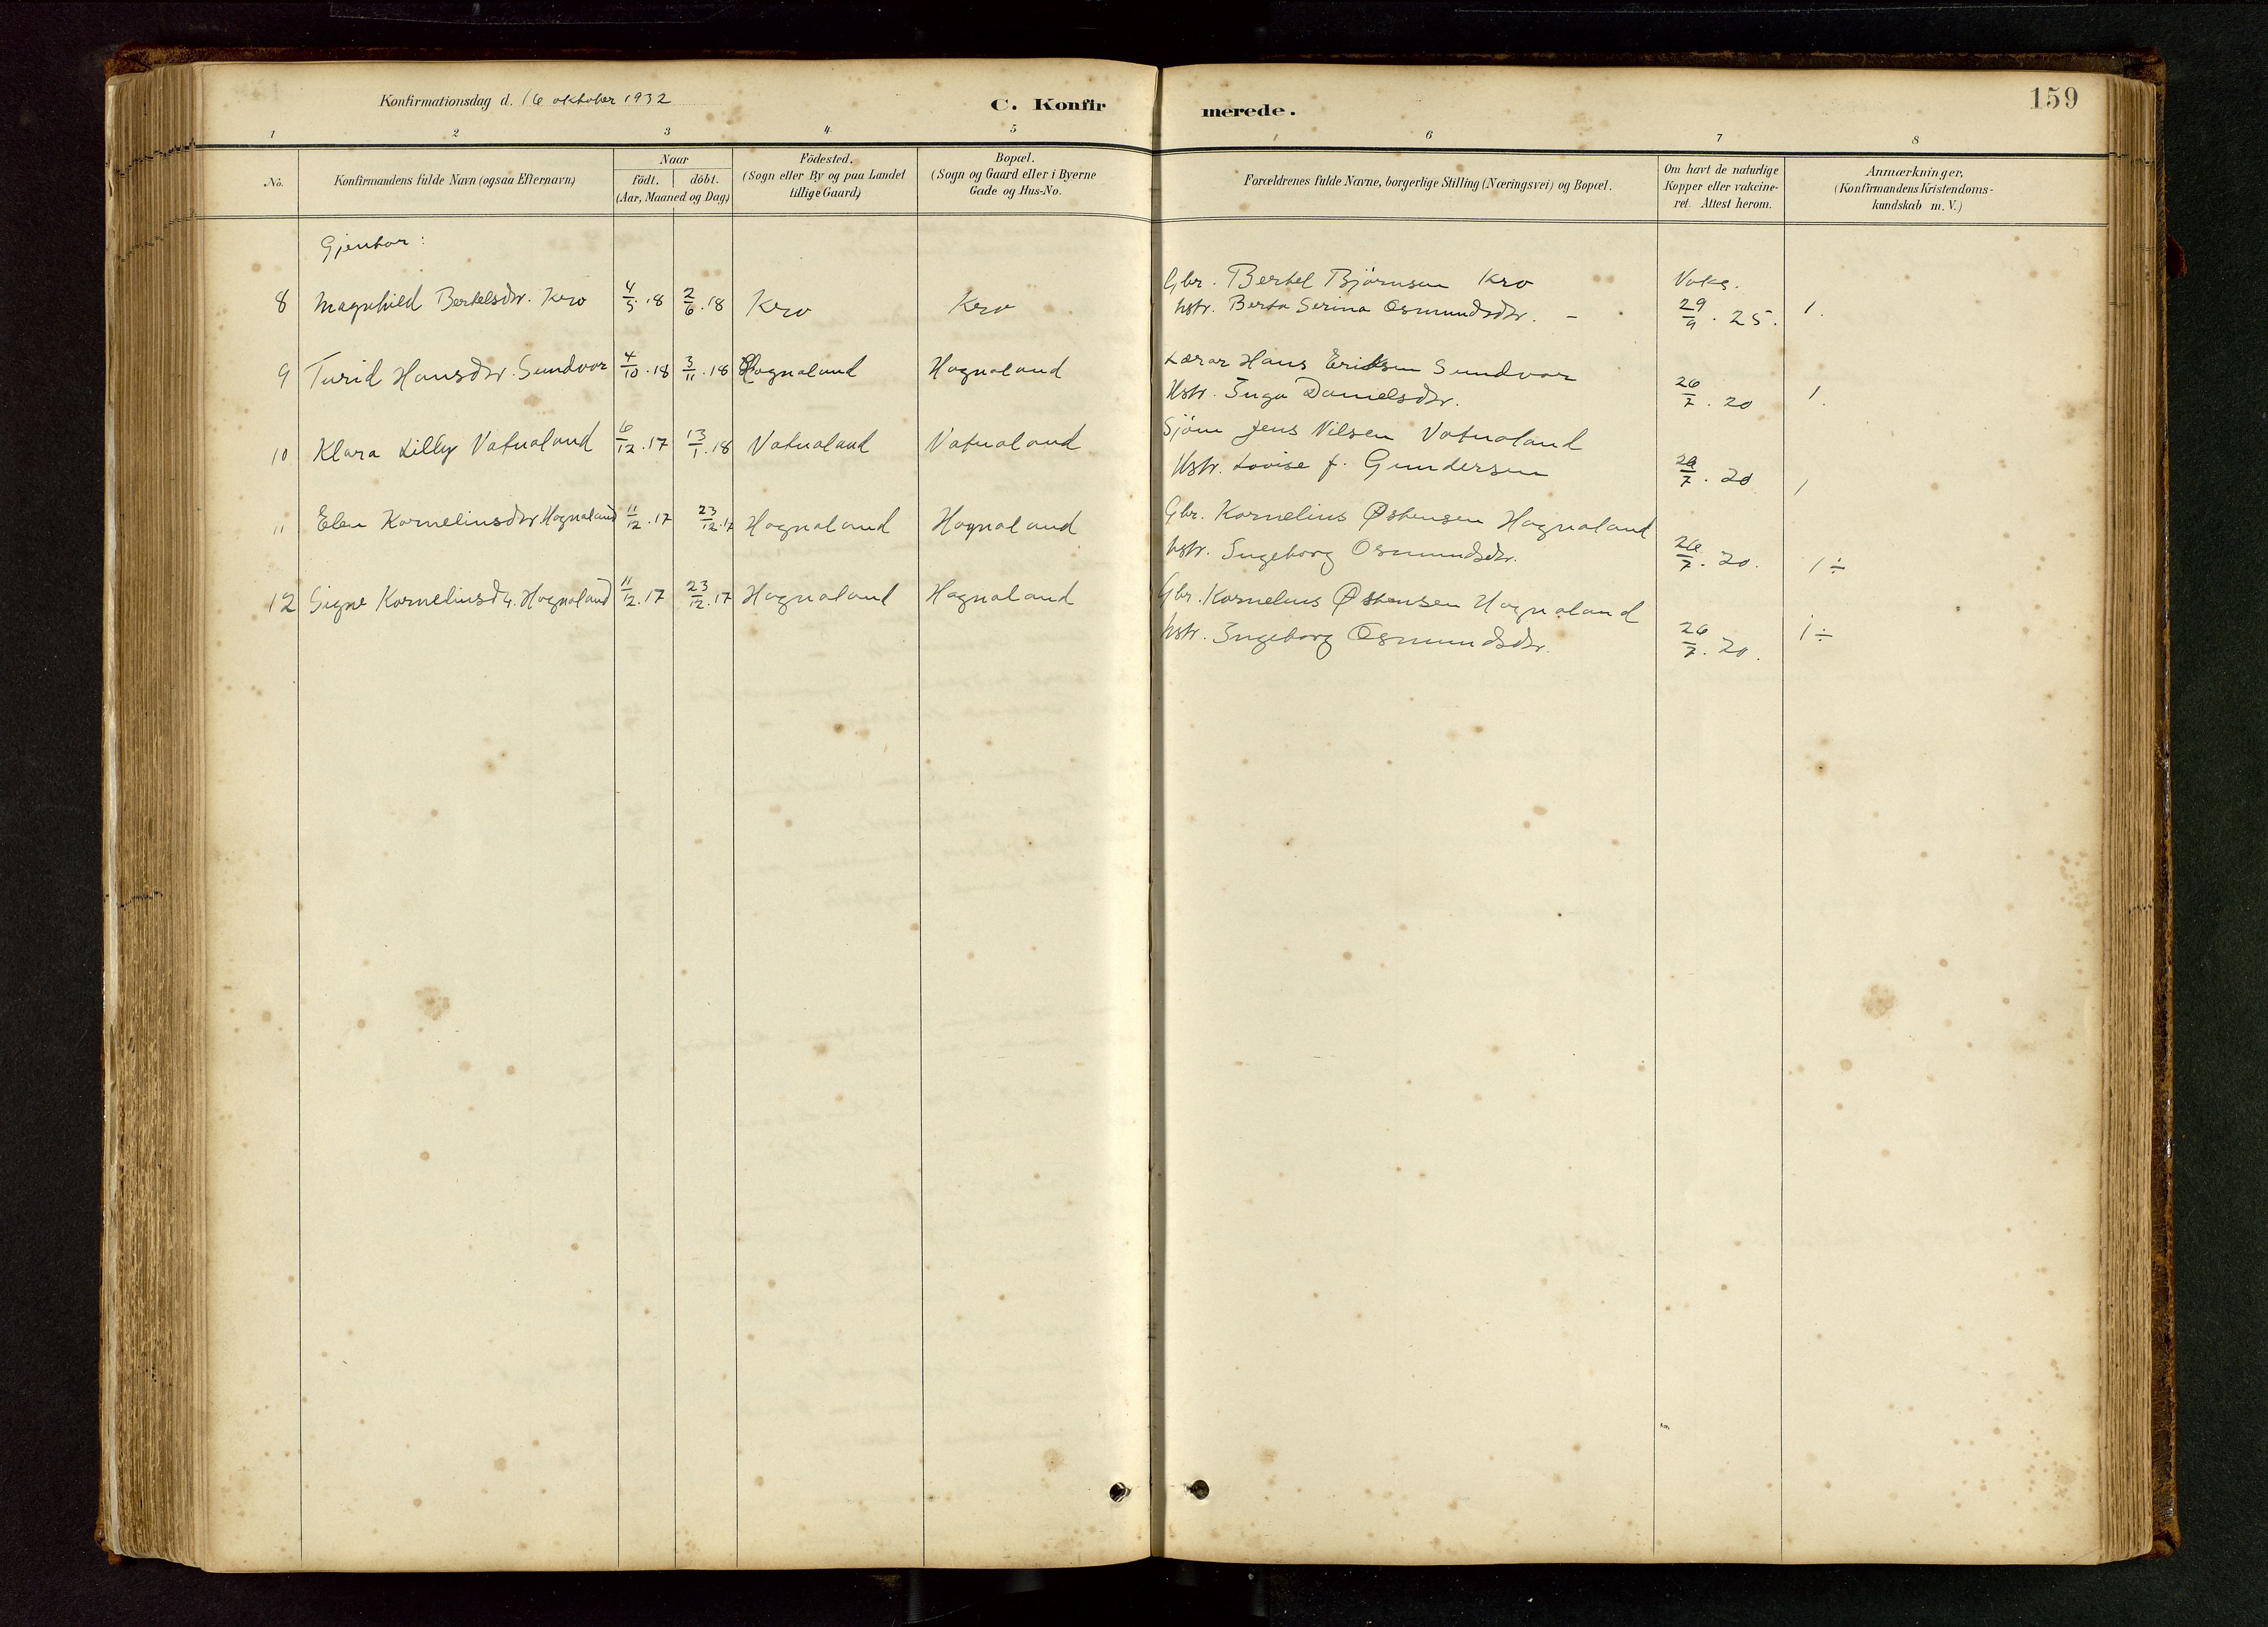 Konfirmationsdag d. 16 oktober 1932
C. Konfirmerede.
159
1 2 3 4 5 6 7 8
No.
Konfirmandens fulde Navn (ogsaa Efternavn)
Naar
födt. döbt.
(Aar, Maaned og Dag)
Födested.
(Sogn eller By og paa Landet
tillige Gaard)
Bopæl.
(Sogn og Gaard eller i Byerne
Gade og Hus-No.
Forældrenes fulde Navne, borgerlige Stilling (Næringsvei) og Bopæl.
Om havt de naturlige
Kopper eller vakcine-
ret. Attest herom.
Anmærkninger,
(Konfirmandens Kristendoms-
kundskab m. V.)
Gjentor:
8 Magnhild Bertelsdtr. Kro 4/5.18 2/6.18 Kro Kro
Gbr. Bertel Bjørnsen Kro
hstr. Berta Serina Osmundsdtr. -
Vaks.
29/9.25. 1.
9 Turid Hansdtr. Sundvor 4/10.18 3/11.18 Hognaland Hognaland
Lærar Hans Eriksen Sundvor
Hstr. Inga Danielsdtr.
26/7.20 1.
10 Klara Lilly Vatnaland 6/12.17 13/1.18 Vatnaland Vatnaland
Sjøm Jens Nilsen Vatnaland
Hstr. Lovise f. Gundersen
26/7.20 1
11 Elen Korneliusdtr Hognaland 11/12.17 23/12.17 Hognaland Hognaland
Gbr. Kornelius Østensen Hognaland
hstr. Ingeborg Osmundsdtr.
26/7.20. 1÷
12 Signe Korneliusdtr. Hognaland 11/12.17 23/12.17 Hognaland Hognaland
Gbr. Kornelius Østensen Hognaland
hstr. Ingeborg Osmundsdtr.
26/7.20. 1÷